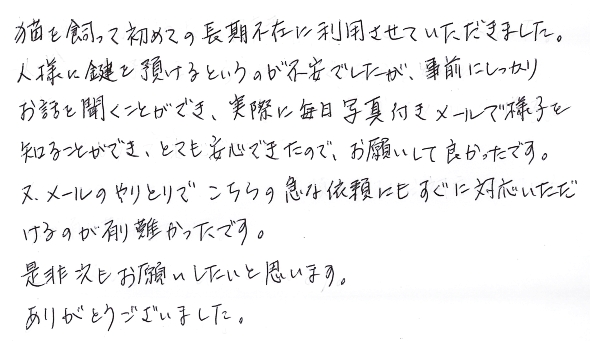 猫を飼って初めての長期不在に利用させていただきました。
人様に鍵を預けるというのが不安でしたが、事前にしっかり
お話を聞くことができ、実際に毎日写真付きメールで様子を
知ることができ、とても安心できたので、お願いして良かったです。
又、メールのやりとりで こちらの急な依頼にもすぐに対応いただだ
けるのが有難かったです。
是非次もお願いしたいと思います。
ありがとうございました。